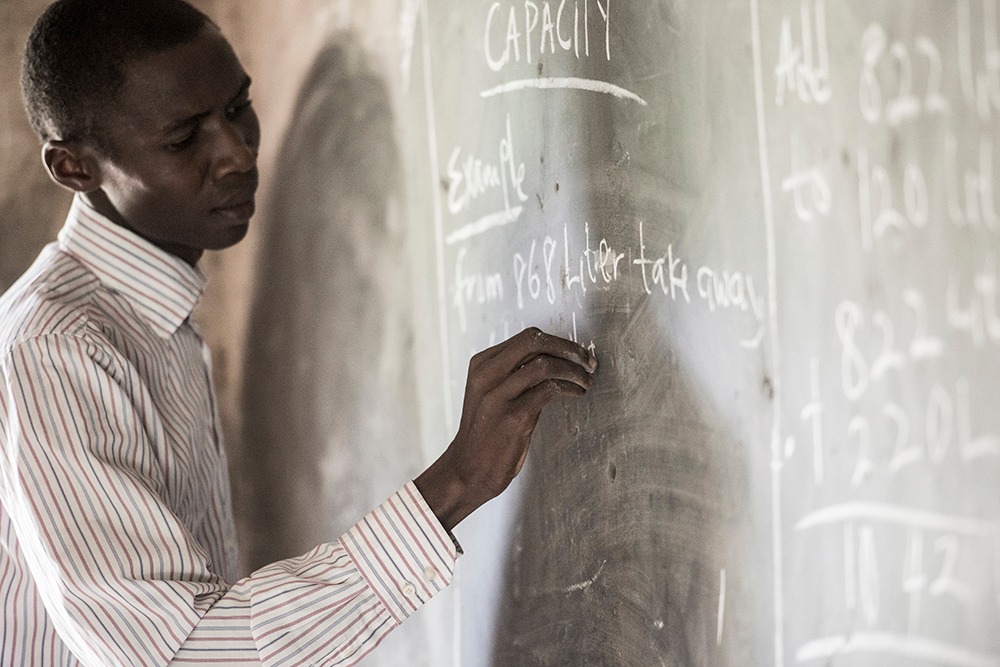 CAPACITY
Example
from 868 Liter take away
Add 822
to 120 lit
822 Lit
+ 220L
1042